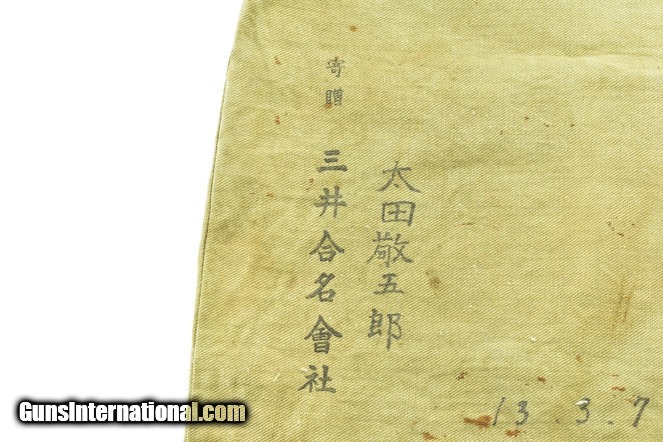 太田敬五郎
寄贈
三井合名會社
13.3.7
GunsInternational.com